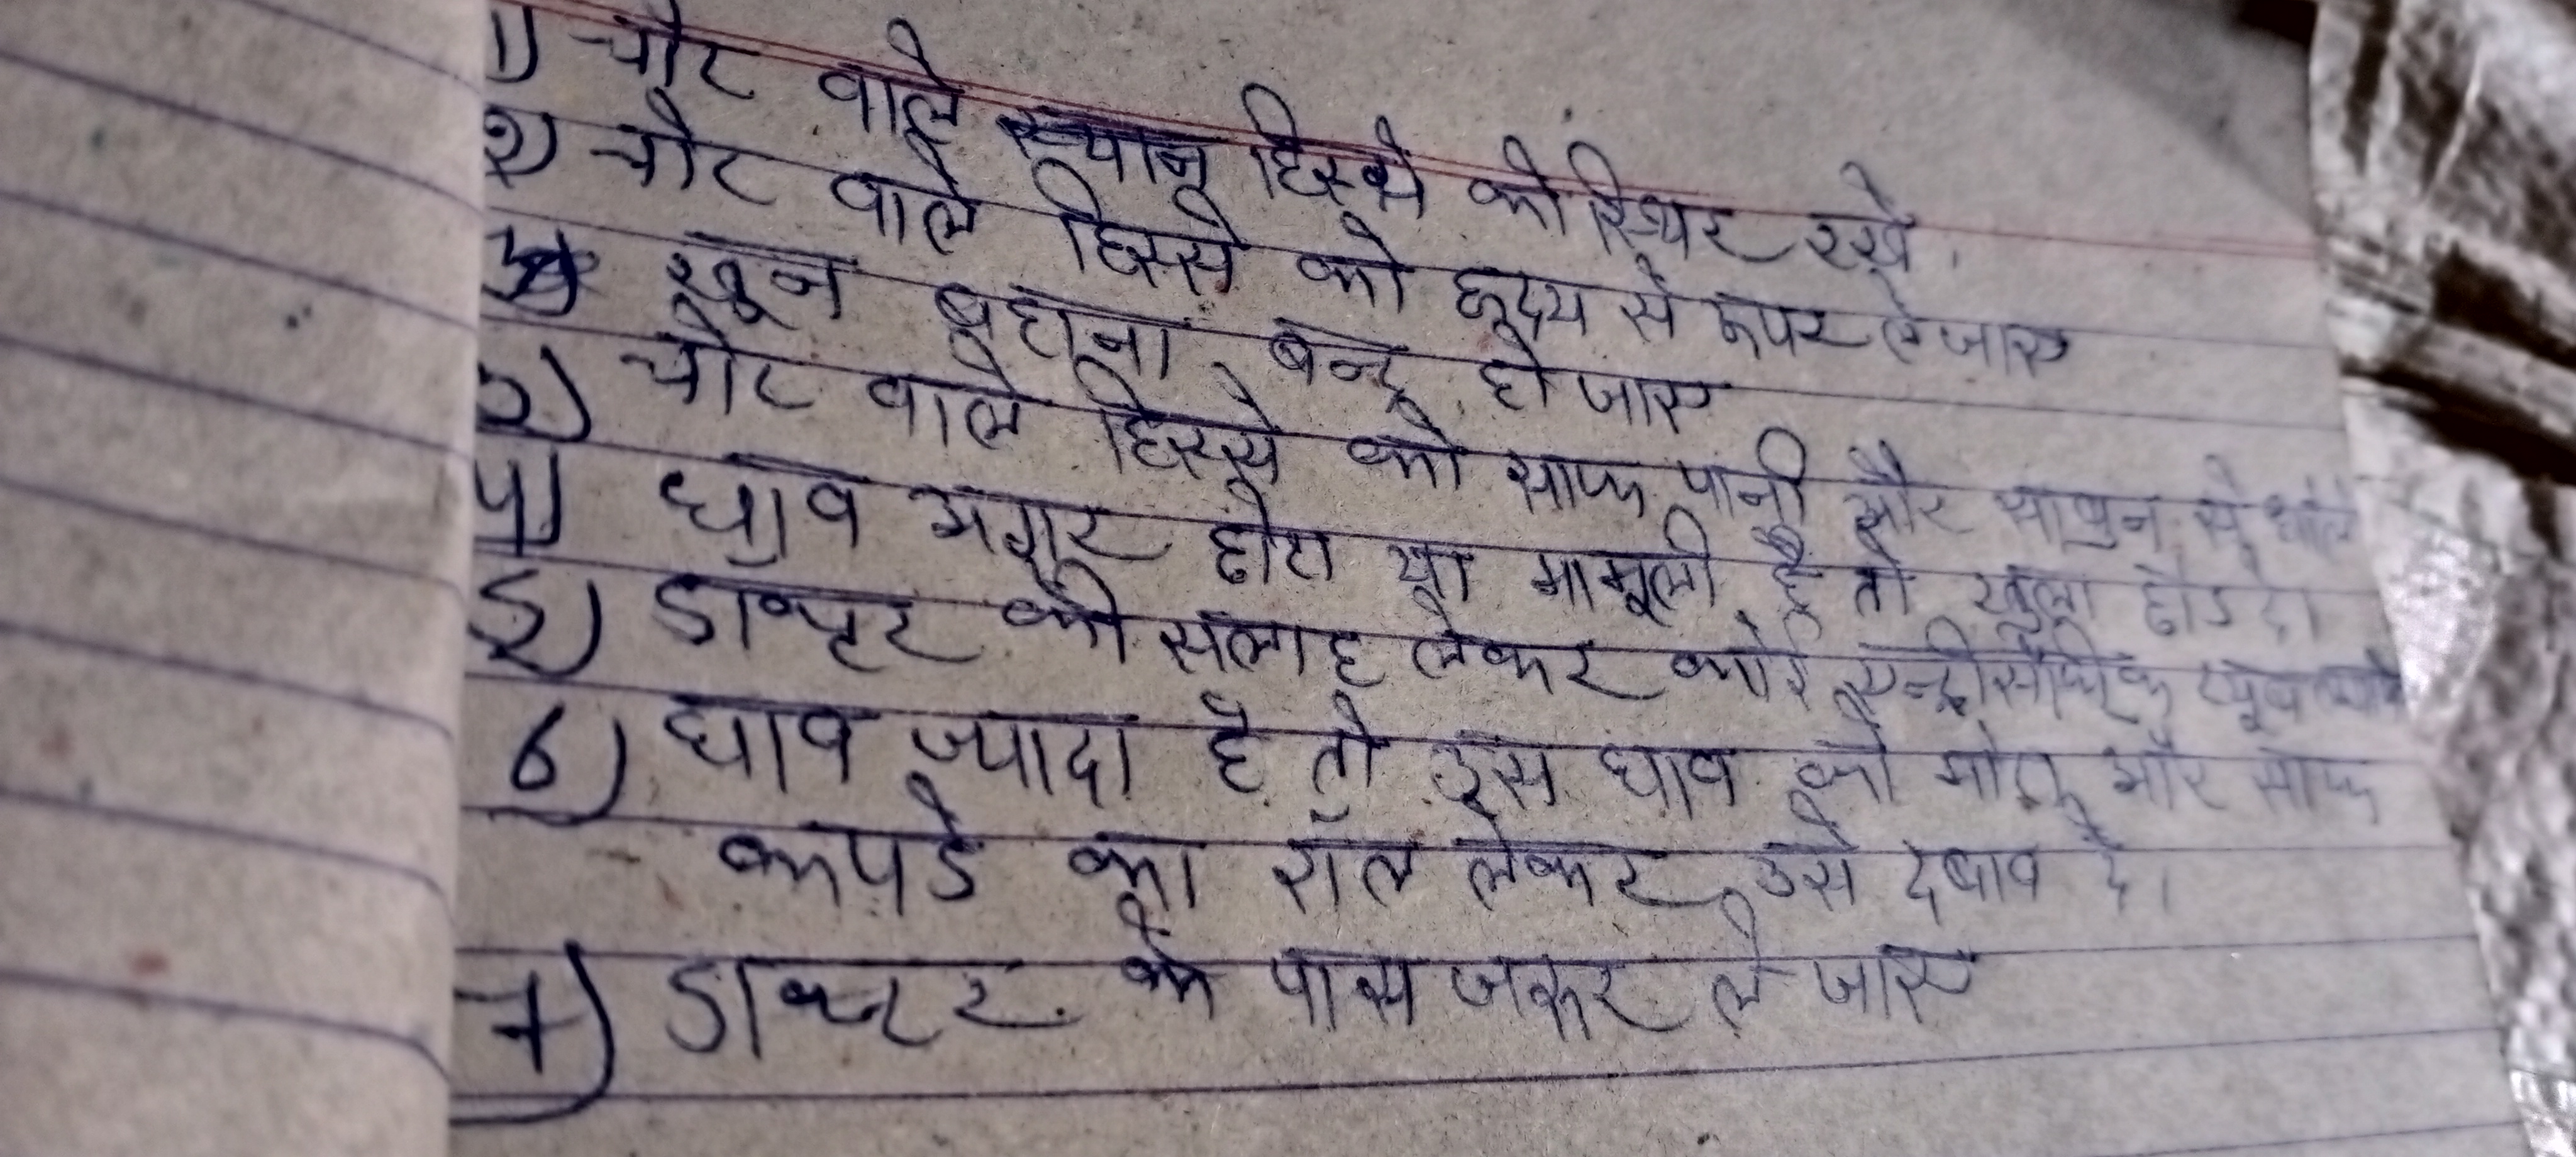 1) चोट वाले स्थान हिस्से को स्थिर रखे।
२) चोट वाले हिस्से को हृदय से ऊपर ले जाए
खून बहाना बन्द हो जाए
३) चोट वाले हिस्से को साफ पानी और साबुन से धोले
4) घाव अगर छोटा या मामूली है तो खुला छोड दे।
5) डाक्टर की सलाह लेकर कोई एन्टीसेप्टिक ट्यूब
6) घाव ज्यादा है तो इस घाव को मोटे और साफ
कपडे का रॉल लेकर उसे दबाव दे।
7) डाक्टर के पास जरूर ले जाए